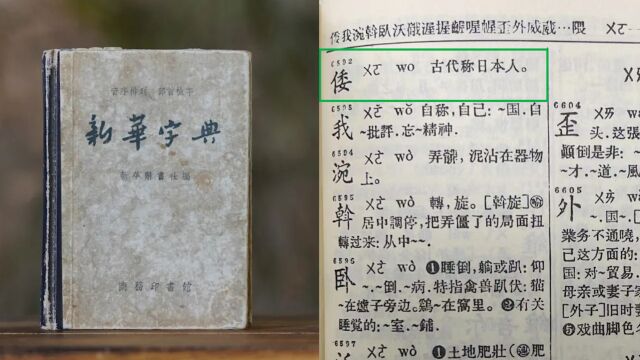 音序排列 部首檢字
新華字典
新华辭書社編
商務印書館
倭我涴斡臥沃硪渥握齷喔幄歪外威葳…隈 ㄨㄛ
6592
倭 ㄨㄛ wo 古代称日本人。
我 ㄨㄛˇ wǒ 自称,自已:~国.自
~批評.忘~精神.
6594
涴 ㄨㄛˋ wò 弄髒,泥沾在器物
上。
6595
斡 ㄨㄛˋ wò 轉,旋。[斡旋]
居中調停,把弄僵了的局面扭
轉过来:从中~~.
臥 ㄨㄛˋ wò ❶睡倒,躺或趴:仰
~.~倒.~病.特指禽兽趴伏:猫
~在爐子旁边.鷄~在窩里。❷有关
睡覚的:~室.~鋪.
ㄨㄛˋ wò ❶土地肥壯
6604
歪
頭.這張
顛倒是非:~
~才.~道.~風
6605
外
~.~国.[
業务不通曉,
已这方面的:
国:对~貿易.
母亲或妻子家
[外子]旧时妻
❺戏曲脚色名